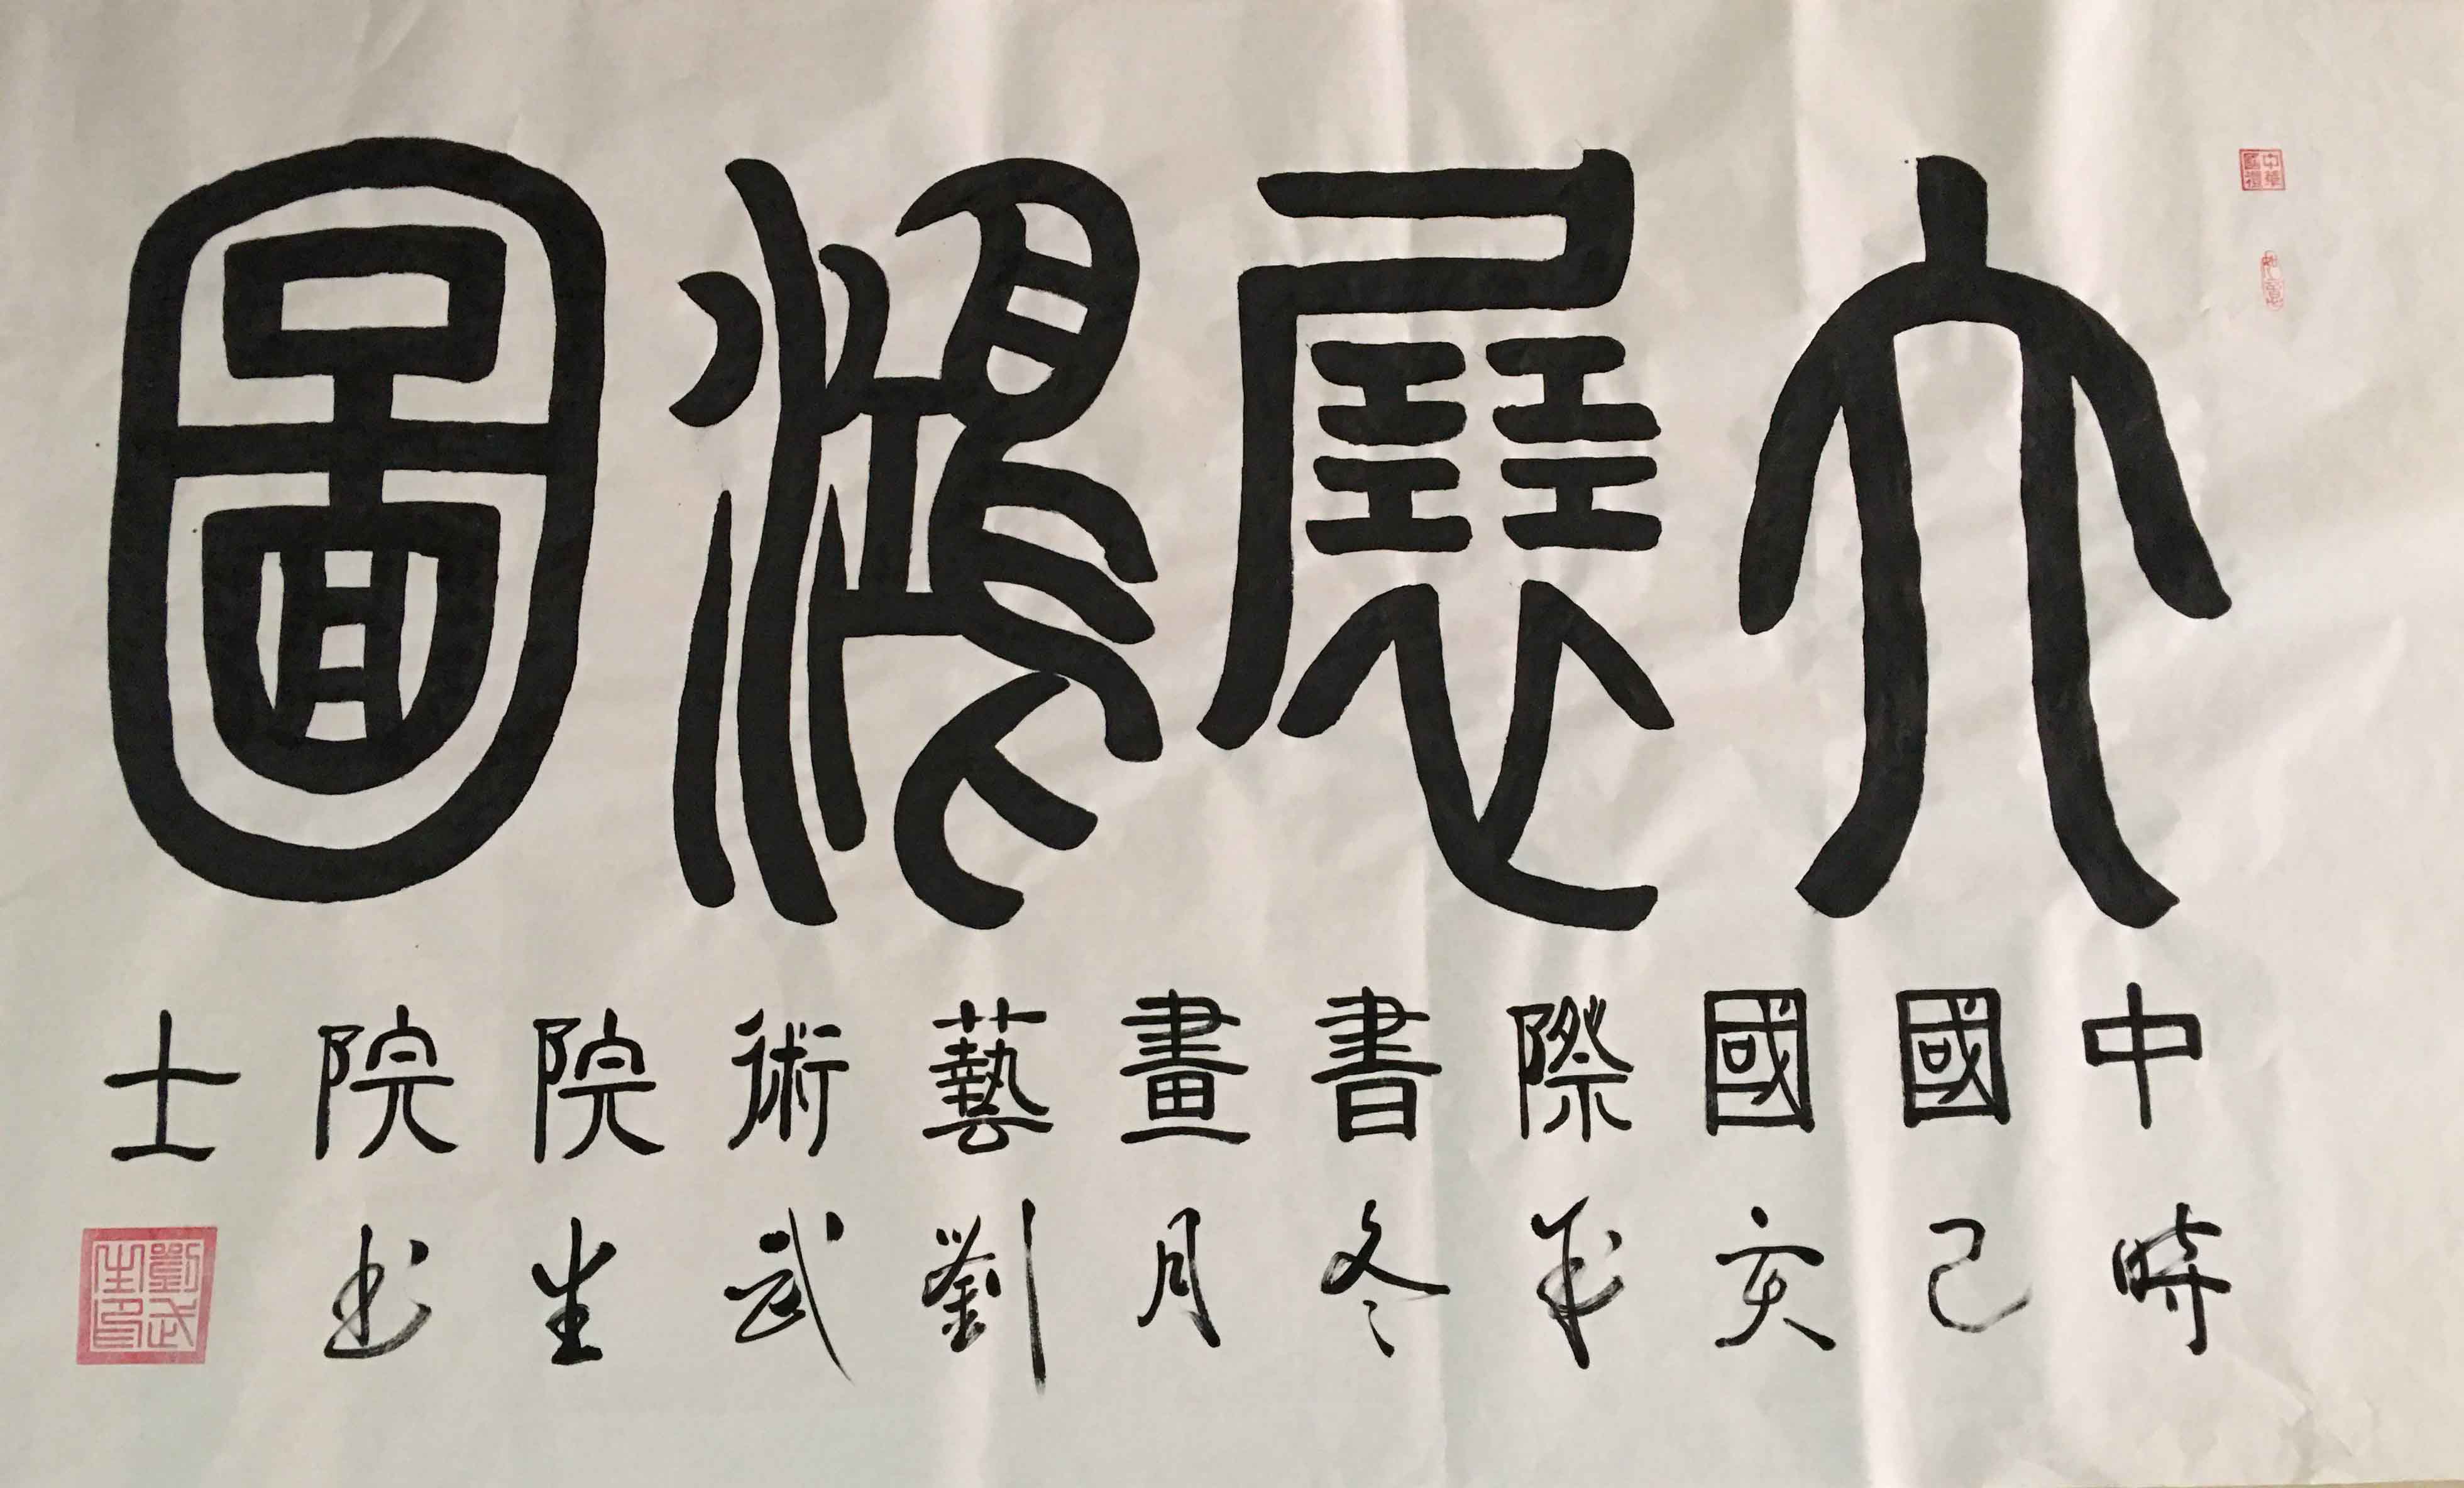 大展鴻圖
中國國際書畫藝術院院士
時己亥年冬月劉武生书
中華國禮
如意
劉武生印